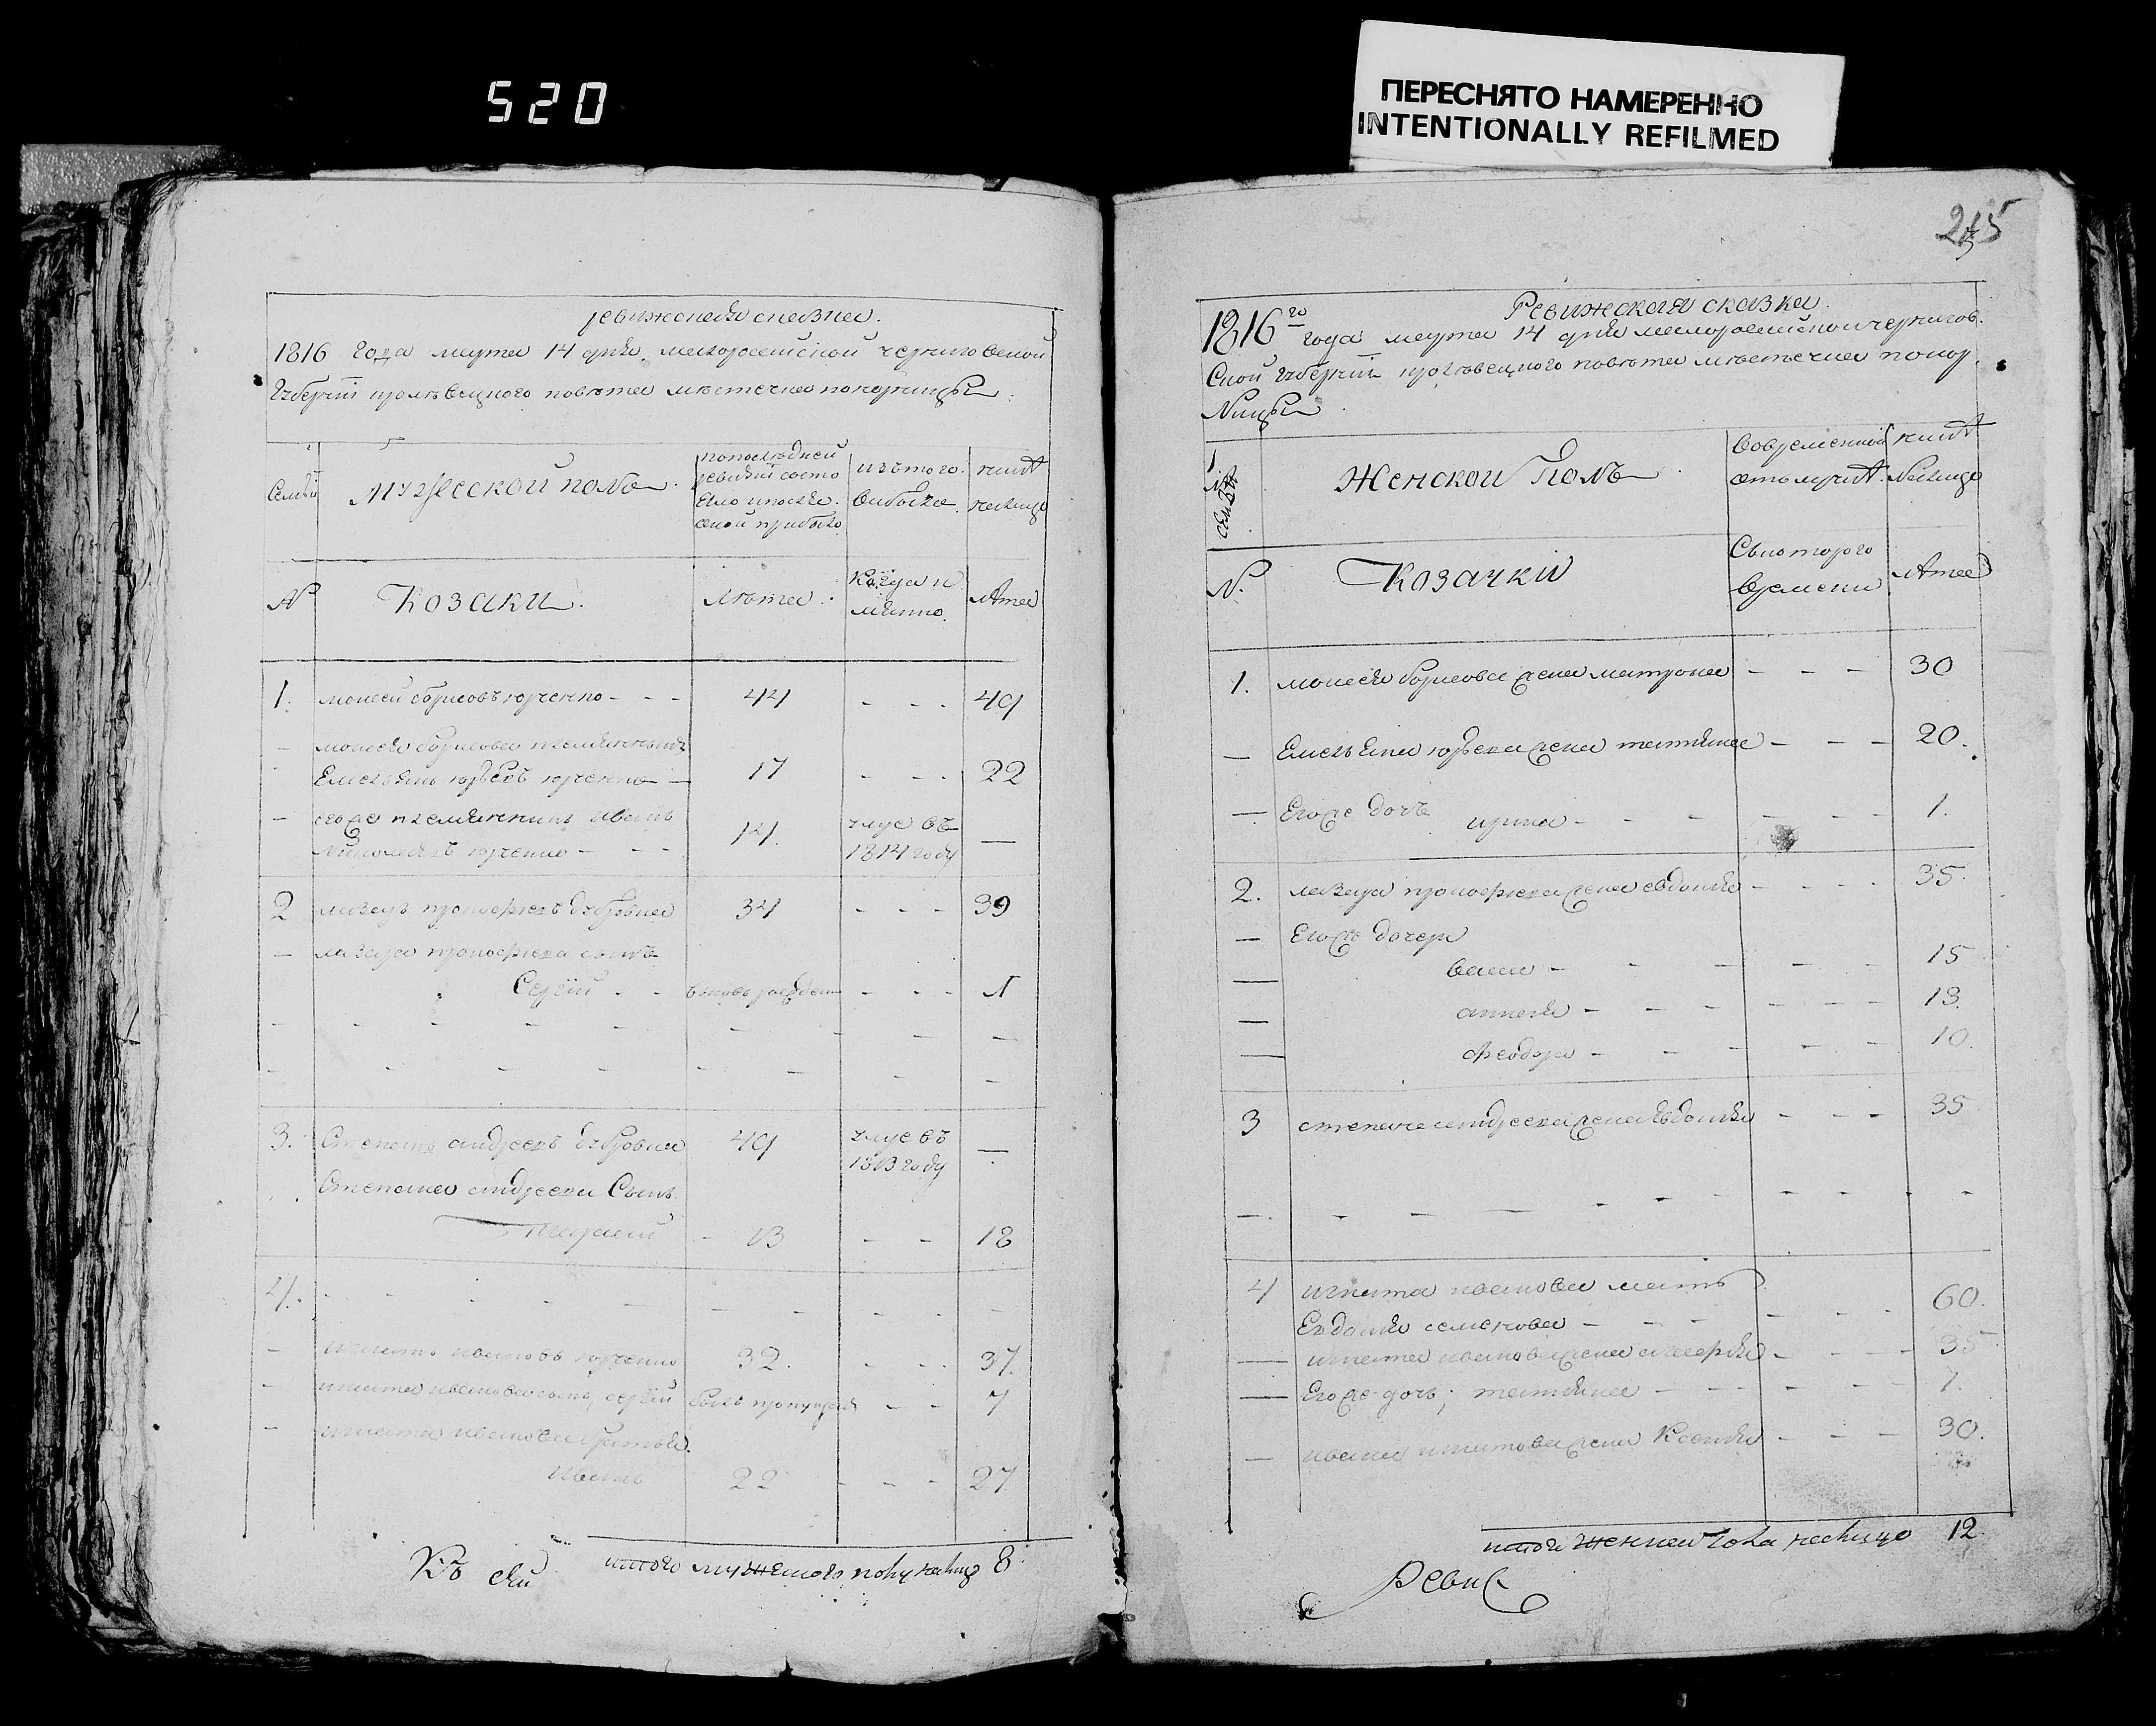 520
ПЕРЕСНЯТО НАМЕРЕННО
INTENTIONALLY REFILMED
ревижская сказка.
1816 года марта 14 дня малоросийской черниговской
Губернii кролѣвецкого повѣта мѣстечка понорницы
Семьи
Мужескои полъ
попослѣдней
ревизiй состо
яло и после
оной прибыло
изътого
выбыло
ныне
налицо
№
Козаки.
Лѣта.
Когда и
мянно.
Лѣта
1. моисей борисовъ юрченко - - - 44 - - - 49
- моисея борисова племянникъ
Емельянъ юрьевъ юрченко 17 - - - 22
- егоже племянникъ иванъ
юрченко - - - 14. умре въ
1814 году —
2 дубровка 34 - - - 39
- сынъ
Сергiй - - вновь рожден - - - 1
3. Степанъ андреевъ дубровка 49 умре въ
1813 году —
Степана андреева Сынъ
- 13 - - 18
4. - - -
- игнатъ ивановъ юрченко 32. - - - 37.
- игната иванова сынъ, сергiй былъ - - 7
- игната иванова братья.
иванъ 22 - - - 27
итого мужеского полу налицо 8
Къ сей
215
Ревижская сказка.
1816го года марта 14 дня малоросийской чернигов
Ской губернiй кролѣвецкого повѣта мѣстечка понор
Ницы
Семьи
Женскои Полъ
Вовременной
отлучкѣ
ныне
Налицо
№.
Козачки
Скоторого
времени
Лѣта
1. моисея борисова жена матрона - - - 30
— Емельяна юрьева жена татияна - - - 20.
— Егоже дочь ирина - - - 1.
2. жена евдокия - - - 35.
— Егоже дочери
— - - - 15
— - - - 13.
— феодора - - - 10.
3 степана андреева жена евдокия - - - 35
4 игната иванова мать
Евдокия семенова - - - 60.
— игната иванова жена - - - 35
— Егоже дочь; татияна - - - 1.
— ивана жена Ксения - - - 30.
итого женска пола налицо 12.
Ревиж